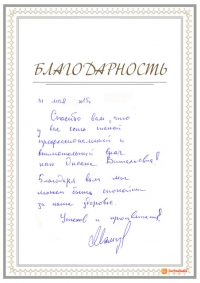 БЛАГОДАРНОСТЬ
11 мая
Спасибо вам, что
у вас есть такой
профессиональный и
внимательный врач
как Оксана Витальевна!
Благодаря вам мы
можем быть спокойны
за наше здоровье.
Успехов и процветания!